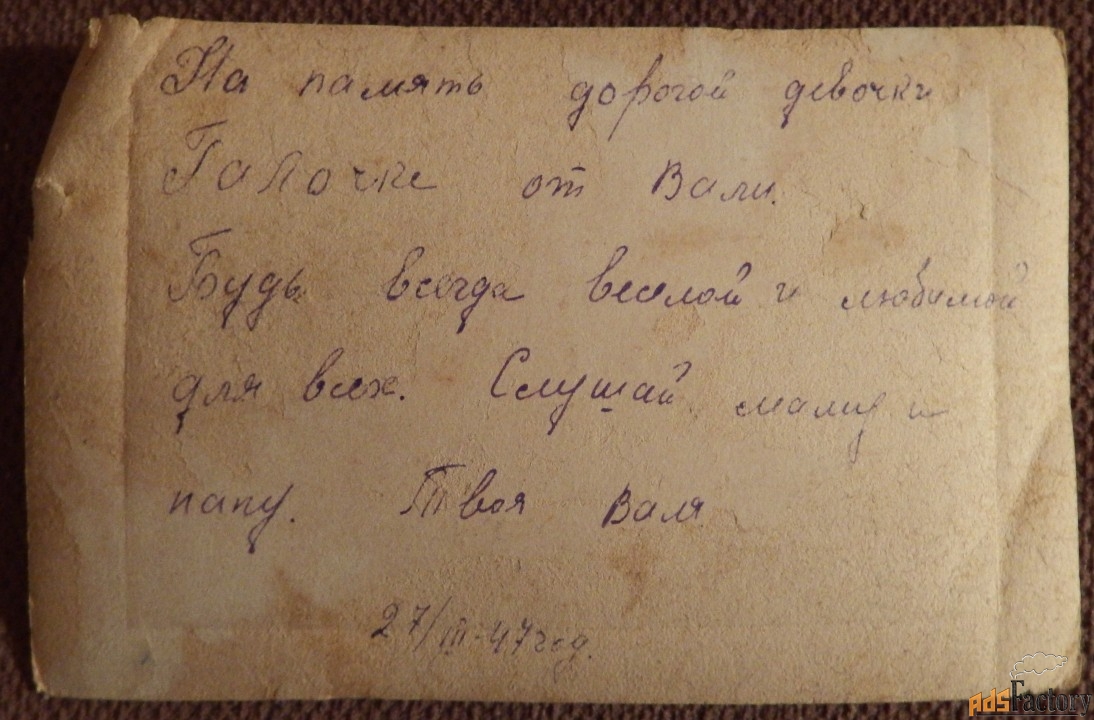 На память дорогой девочки
Галочке от Вали.
Будь всегда веселой и любимой
для всех. Слушай маму и
папу. Твоя Валя
27/III-47 год.
adsFactory